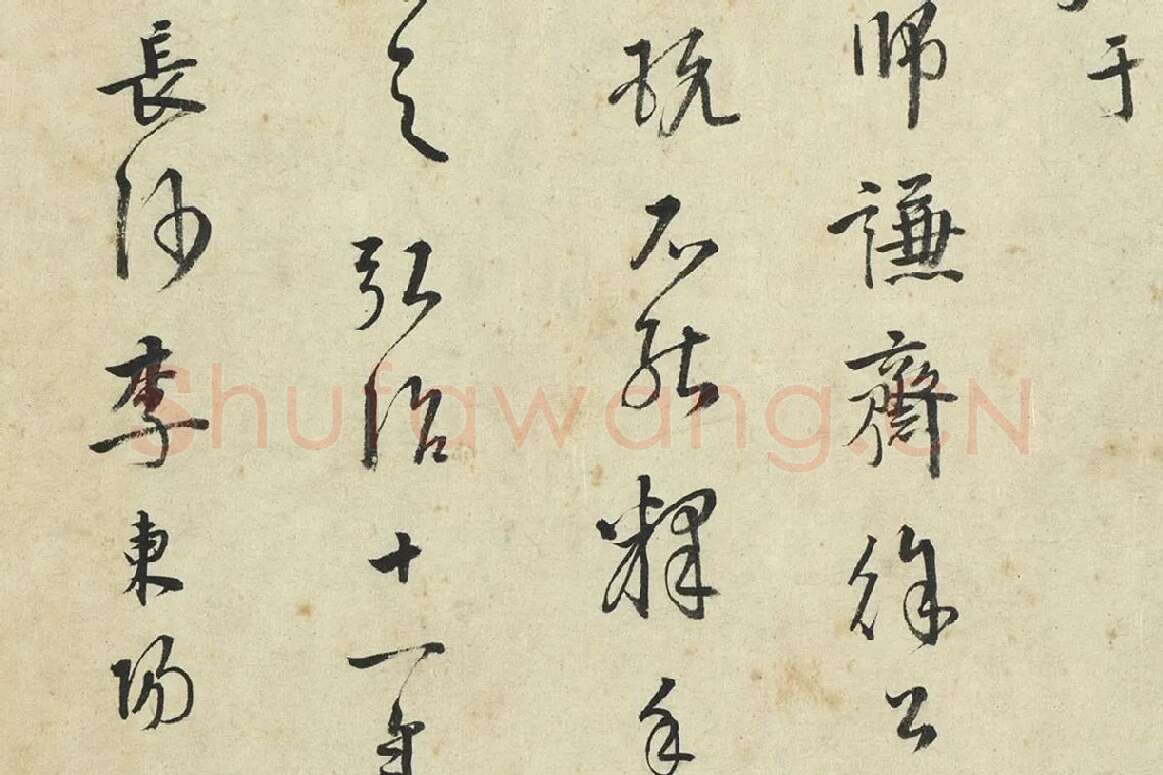 于
師謙齋徐公
玩不能釋手
之弘治十一年
長沙李東陽
Shufawang.CN